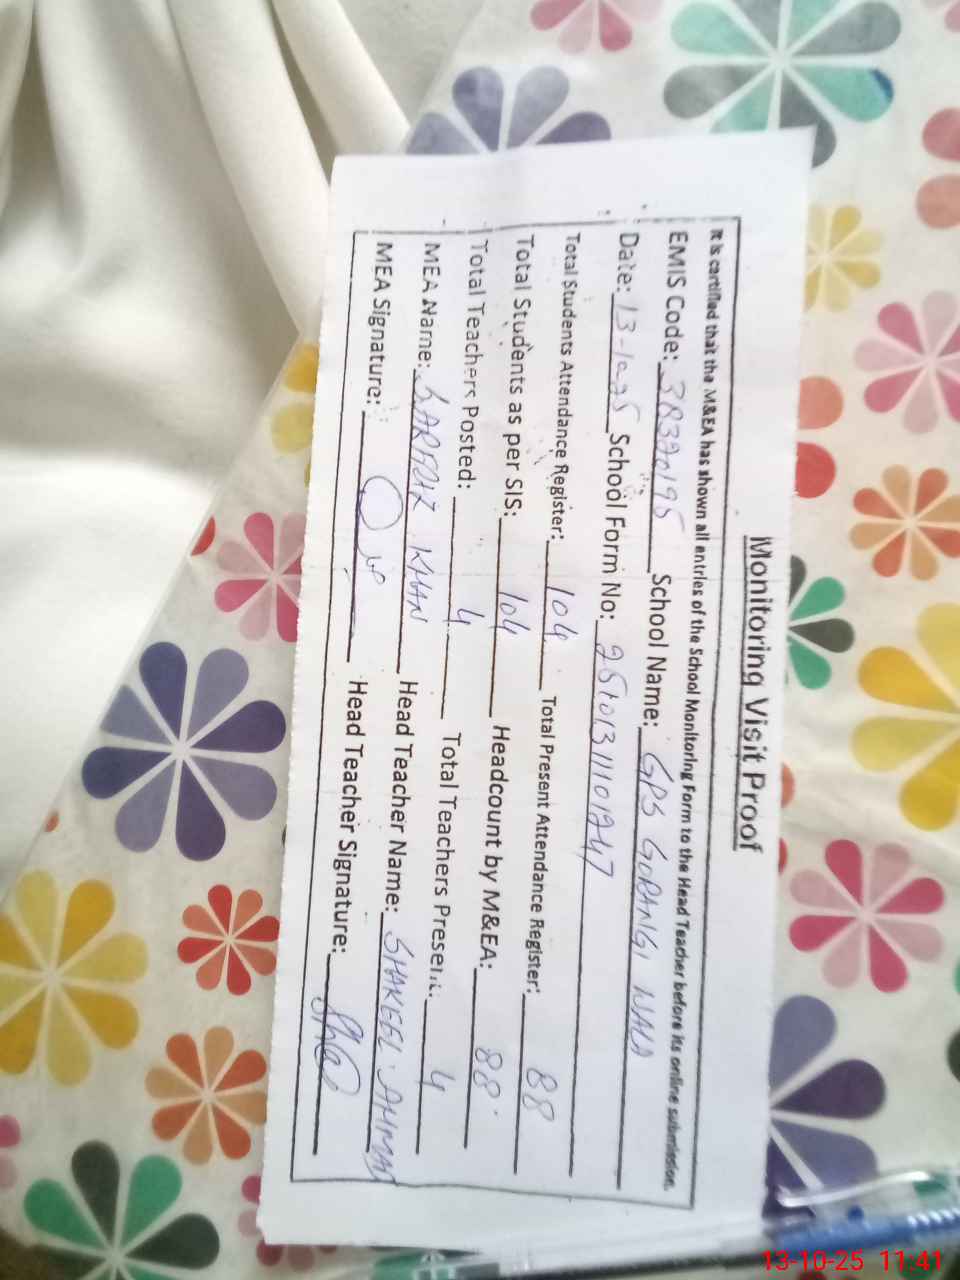 Monitoring Visit Proof
It is certified that the M&EA has shown all entries of the School Monitoring Form to the Head Teacher before its online submission.
EMIS Code: 38320195 School Name: GPS GORANGI NALA
Date: 13-10-25 School Form No: 25101311101247
Total Students Attendance Register: 104 Total Present Attendance Register: 88
Total Students as per SIS: 104 Headcount by M&EA: 88
Total Teachers Posted: 4 Total Teachers Present: 4
MEA Name: SARFOZ KHAN Head Teacher Name: SHAKEEL AHMAD
MEA Signature: Head Teacher Signature:
13-10-25 11:41